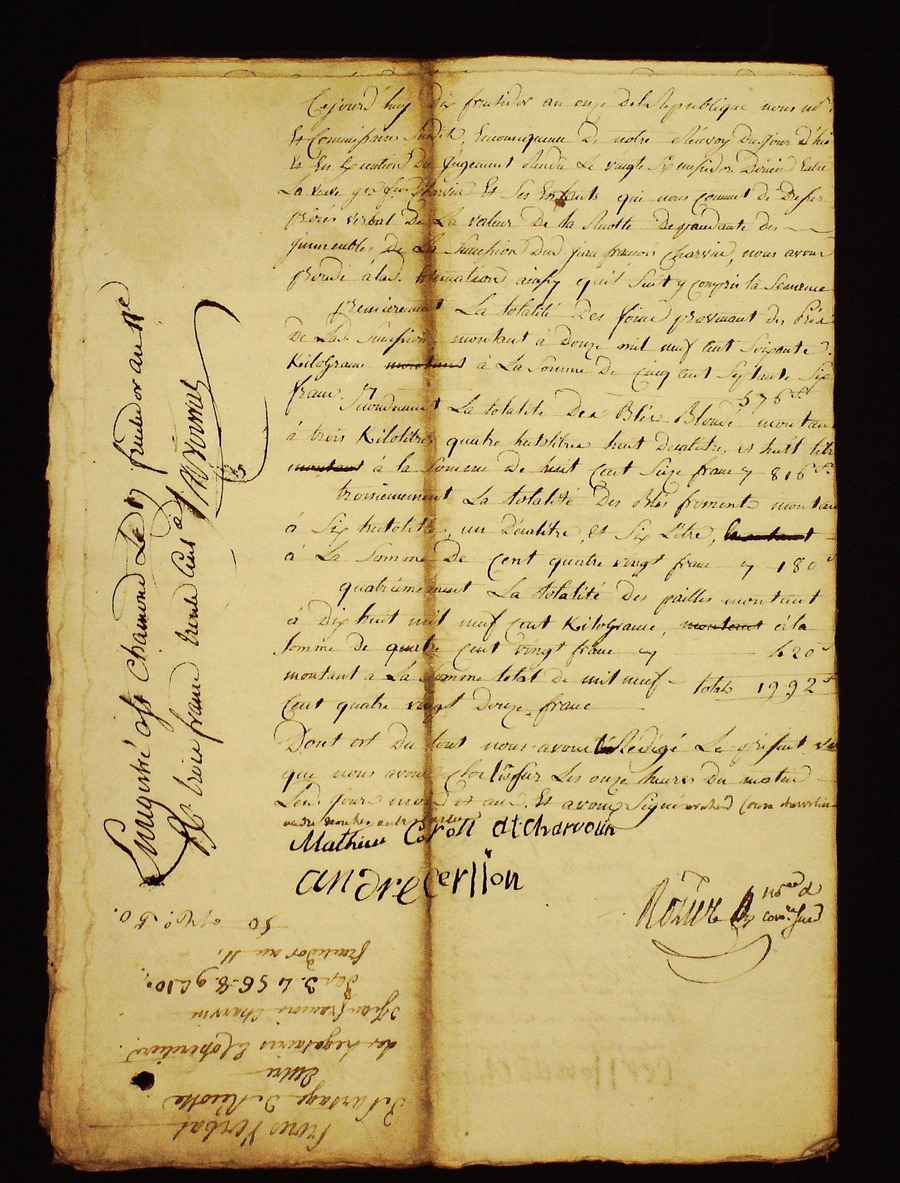 Cejourd'huy dix fructidor an onze de la Republique nous no.re
Et Commissaire susdit, En consequence de notre Renvoy du jour d'hie
Et En Execution du jugement Rendu Le vingt six messidor Dernier Entre
La veuve Charvin Et Ses Enfants qui nous commet de Dresser
procès verbal De La valeur De la Recolte Dependante des
jmmeubles De La Succession Dud. jean françois Charvin, nous avons
procedé à lad. Estimation ainsy qu'il Suit y compris la Semence
premierement La totalité Des foins provenant des Prés
De Lad. Succession montant à Douze mil neuf cent Soixante
KiloGrame montant à La Somme De Cinq cent Septante Six
franc 576
Secondement La totalité Des Blés Blonde montan
à trois Kilolitre quatre hectolitre huit Decalitre, et huit litre
montant à la Somme De huit Cent Seize franc 816
troisiemement La totalité Des Blés froment montan
à Six hectolitre, un Décalitre, Et Six Litre, montant
à La Somme De Cent quatre vingt franc 180
quatriemement La totalité Des pailles montant
à Dix huit mil neuf Cent KiloGrame, montant à la
Somme De quatre Cent vingt franc 420
montant a La Somme total de mil neuf total 1992
Cent quatre vingt Douze franc
Dont et Du tout nous avons Rédigé Le present
que nous avons Clos sur Les onze heures Du matin
Lesd. jour mois et an. Et avons Signé
Mathieu Coron at Charvoin
andre cerlion
no.re
Enregistré à St Chamond Le 17 fructidor an 11e
Rc trois franc trente Cent
50
fructidor an 11.
3. 4 5 6-8. 9 & 10.
Jean francois Charvin
des Legataires &
Entre
De Partage De Recolte
Proces Verbal